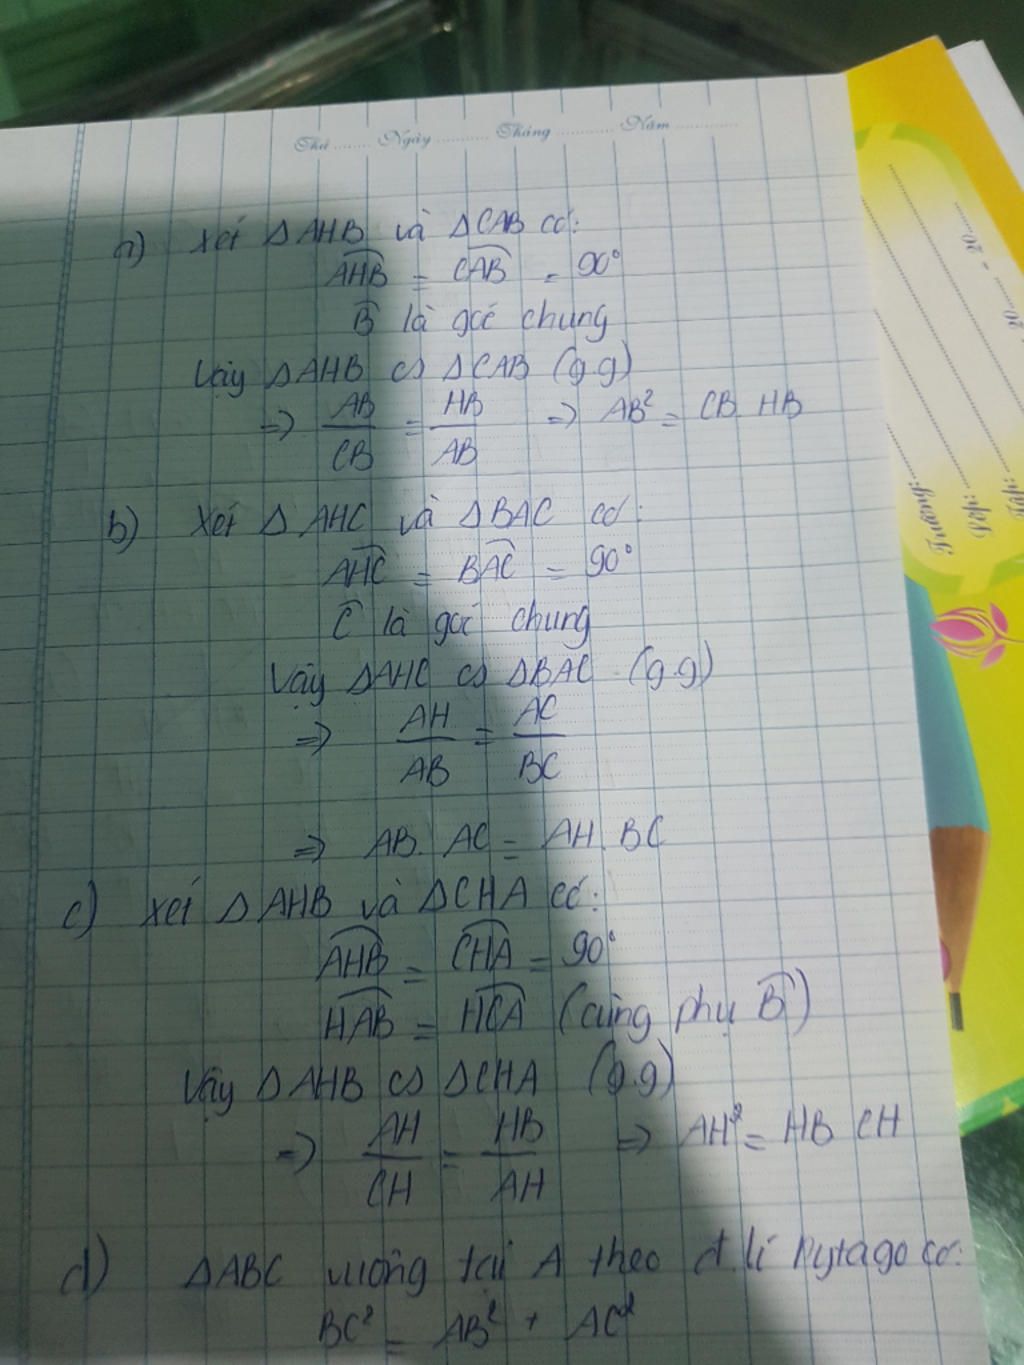 Thứ ........ Ngày ............ Tháng ............ Năm ............
a) Xét ΔAHB và ΔCAB có:
AHB = CAB = 90°
B là góc chung
Vậy ΔAHB ∽ ΔCAB (g.g)
=> AB/CB = HB/AB => AB² = CB HB
b) Xét Δ AHC và ΔBAC có:
AHC = BAC = 90°
C là góc chung
Vậy ΔAHC ∽ ΔBAC (g.g)
=> AH/AB = AC/BC
=> AB. AC = AH. BC
c) Xét ΔAHB và ΔCHA có:
AHB = CHA = 90°
HAB = HCA (cùng phụ B)
Vậy ΔAHB ∽ ΔCHA (g.g)
=> AH/CH = HB/AH => AH² = HB CH
d) ΔABC vuông tại A theo đ.lí Pytago có:
BC² = AB² + AC²
Trường:
Lớp:
Tập:
20..... - 20.....